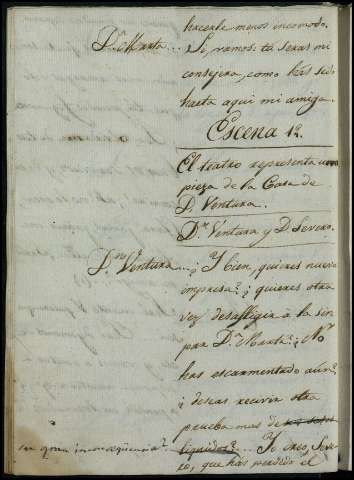 hacerle menos incomodo.
D.ª Marta... Sí, vamos: tú seras mi
consejera, como has sido
hasta aqui mi amiga.
Escena 12.
El teatro representa una
pieza de la Casa de
D. Ventura.
D.n Ventura y D. Severo.
D.n Ventura... ¿Y bien, quieres nueva
empresa? ¿quieres otra
vez desafligir à la sin
par D.ª Marta? ¿No
has escarmentado aún?
¿deseas recivir otra
prueba mas de
su gran inconseqüencia? liquidos? Tu eres, Seve-
ro, que has perdido el